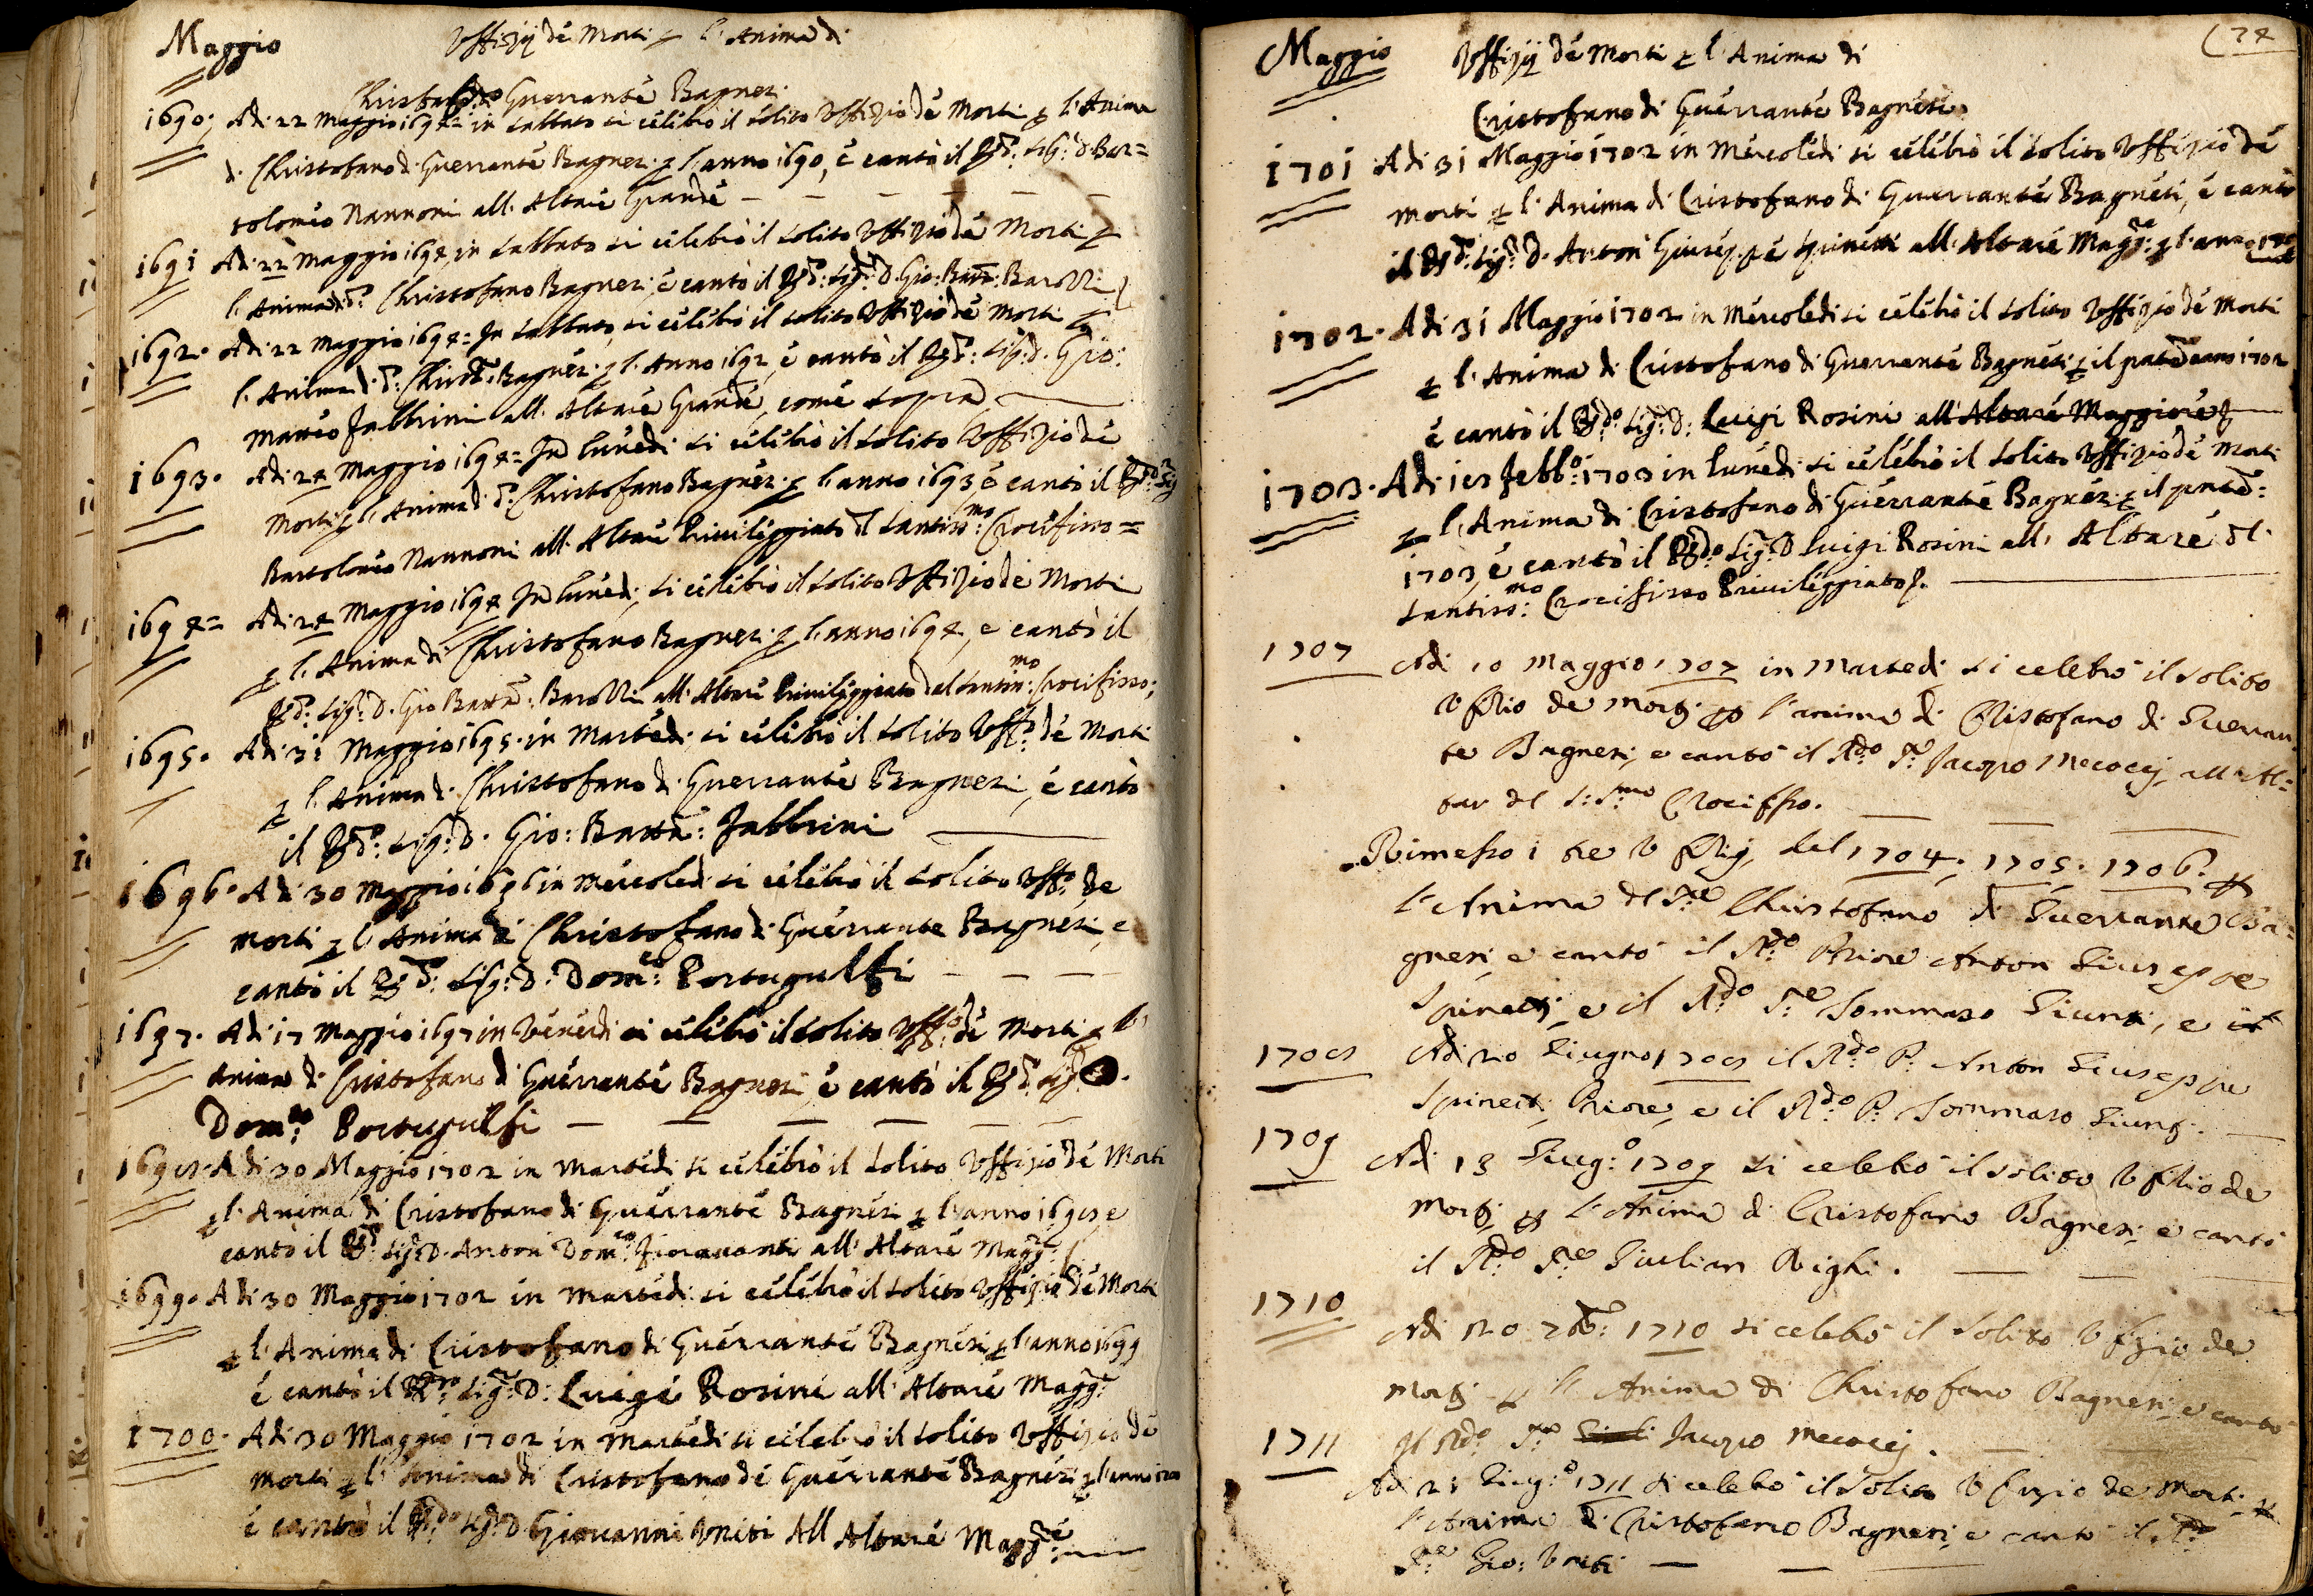 Maggio
Uffizij de Morti p l'Anima di
Christofano di Guerrante Bagnesi
1690. Adi 22 Maggio 1694 = in Sabbato si celebrò il solito Uffizio de Morti p l'Anima
di Christofano di Guerrante Bagnesi p l'anno 1690, e cantò il Rdo: Sig: D. Bar=
tolomeo Nannoni all'Altare Grande
1691 Adi 22 Maggio 1694, in Sabbato si celebrò il solito Uffizio de Morti p
l'Anima di do: Christofano Bagnesi, e cantò il Rdo: Sigre D. Gio: Batta: Barozzi
1692. Adi 22 Maggio 1694 = In Sabbato, si celebrò il solito Uffizio de Morti p
l'Anima di do: Christo: Bagnesi p l'Anno 1692, e cantò il Rdo: Sig: D. Gio:
Matteo Fabbrini all'Altare Grande, come sopra
1693. Adi 24 Maggio 1694 = In Lunedi si celebrò il solito Uffizio de
Morti p l'Anima di do: Christofano Bagnesi p l'anno 1693, e cantò il Rdo: Sig
Bartolomeo Nannoni all'Altare Privileggiato del Santissmo: Crocifisso =
1694 = Adi 24 Maggio 1694 In Lunedi, si celebrò il solito Uffizio de Morti
p l'Anima di Christofano Bagnesi p l'anno 1694, e cantò il
Rdo: Sig: D. Gio Batta: Barozzi all'Altare Privileggiato del Santissmo: Crocifisso;
1695. Adi 31 Maggio 1695. in Martedi, si celebrò il solito Uffo: de Morti
p l'Anima di Christofano di Guerrante Bagnesi, e cantò
il Rdo: Sig: D. Gio: Batta: Fabbrini
1696. Adi 30 Maggio 1696 in Mercoledi si celebrò il solito Uffo: de
Morti p l'Anima di Christofano di Guerrante Bagnesi, e
cantò il Rdo: Sig: D: Domco: Portugulfi
1697. Adi 17 Maggio 1697 in Venerdi si celebrò il solito Uffo: de Morti p l'
Anima di Cristofano di Guerrante Bagnesi, e cantò il Rdo: Sigr D.
Domco: Portugulfi
1698. Adi 30 Maggio 1702 in Martedi si celebrò il solito Uffizio de Morti
p l'Anima di Cristofano di Guerrante Bagnesi p l'anno 1698 e
canto il Rdo: Sigr D. Anton Domco: Fioravanti all'Altare Magge:
1699. Adi 30 Maggio 1702 in Martedi si celebrò il solito Uffizio de Morti
p l'Anima di Cristofano di Guerrante Bagnesi p l'anno 1699
e cantò il Sigr: D: Luigi Rosini all'Altare Magge:
1700. Adi 30 Maggio 1702 in Martedi si celebro il solito Uffizio de
Morti p l'Anima di Cristofano di Guerrante Bagnesi p l'anno 1700
e cantò il Rdo Sigr D Giovanni Uniti All Altare Magge:
74
Maggio
Uffizij de Morti p l'Anima di
Cristofano di Guerrante Bagnesi
1701 Adi 31 Maggio 1702 in Mercoledi si celebrò il solito Uffizio de
Morti p l'Anima di Cristofano di Guerrante Bagnesi, e cantò
il Rdo: Sigr: D. Anton Giuseppe Spinetti all'Altare Magge: p l'anno 1701
1702. Adi 31 Maggio 1702 in Mercoledi si celebrò il solito Uffizio de Morti
p l'Anima di Cristofano di Guerrante Bagnesi p il pnte anno 1702
e cantò il Rdo Sigr: D: Luigi Rosini all'Altare Maggiore
1703. Adi 18 Febbo: 1703 in Lunedi si celebrò il solito Uffizio de Morti
p l'Anima di Cristofano di Guerrante Bagnesi p il pnte:
1703, e cantò il Rdo Sigr: D Luigi Rosini all'Altare del
Santissmo: Crocifisso Privileggiato.
1707 Adi 10 Maggio 1707 in Martedi si celebrò il solito
Uffizio de morti p l'anima di Cristofano di Guerran
te Bagnesi, e cantò il Rdo Sre Jacopo Mecocci, all'Al=
tar del S:Smo Crocifisso.
Rimesso i tre Uffizij del 1704. 1705. 1706. p
l'Anima del Sre Christofano di Guerrante Ba=
gnesi, e cantò il Rdo Priore Anton Giuseppe
Spinetti, e il Rdo Sre Tommaso Giunti, e il
1708 Adi 20 Giugno 1708 il Rdo P. Anton Giuseppe
Spinetti, Priore, e il Rdo P. Tommaso Giunti.
1709 Adi 13 Giugo: 1709 si celebrò il solito Uffizio de
Morti p l'Anima di Cristofano Bagnesi e cantò
il Rdo Sre Giulian Righi.
1710 Adi 20 7bre: 1710 si celebrò il solito Uffizio de
Morti p l'Anima di Christofano Bagnesi, e cantò
il Rdo Sre Jacopo Mecocci.
1711 Adi 21 Giugo: 1711 si celebrò il solito Uffizio de Morti p
l'Anima di Cristofano Bagnesi, e cantò il Rdo
Sre Gio: Uniti